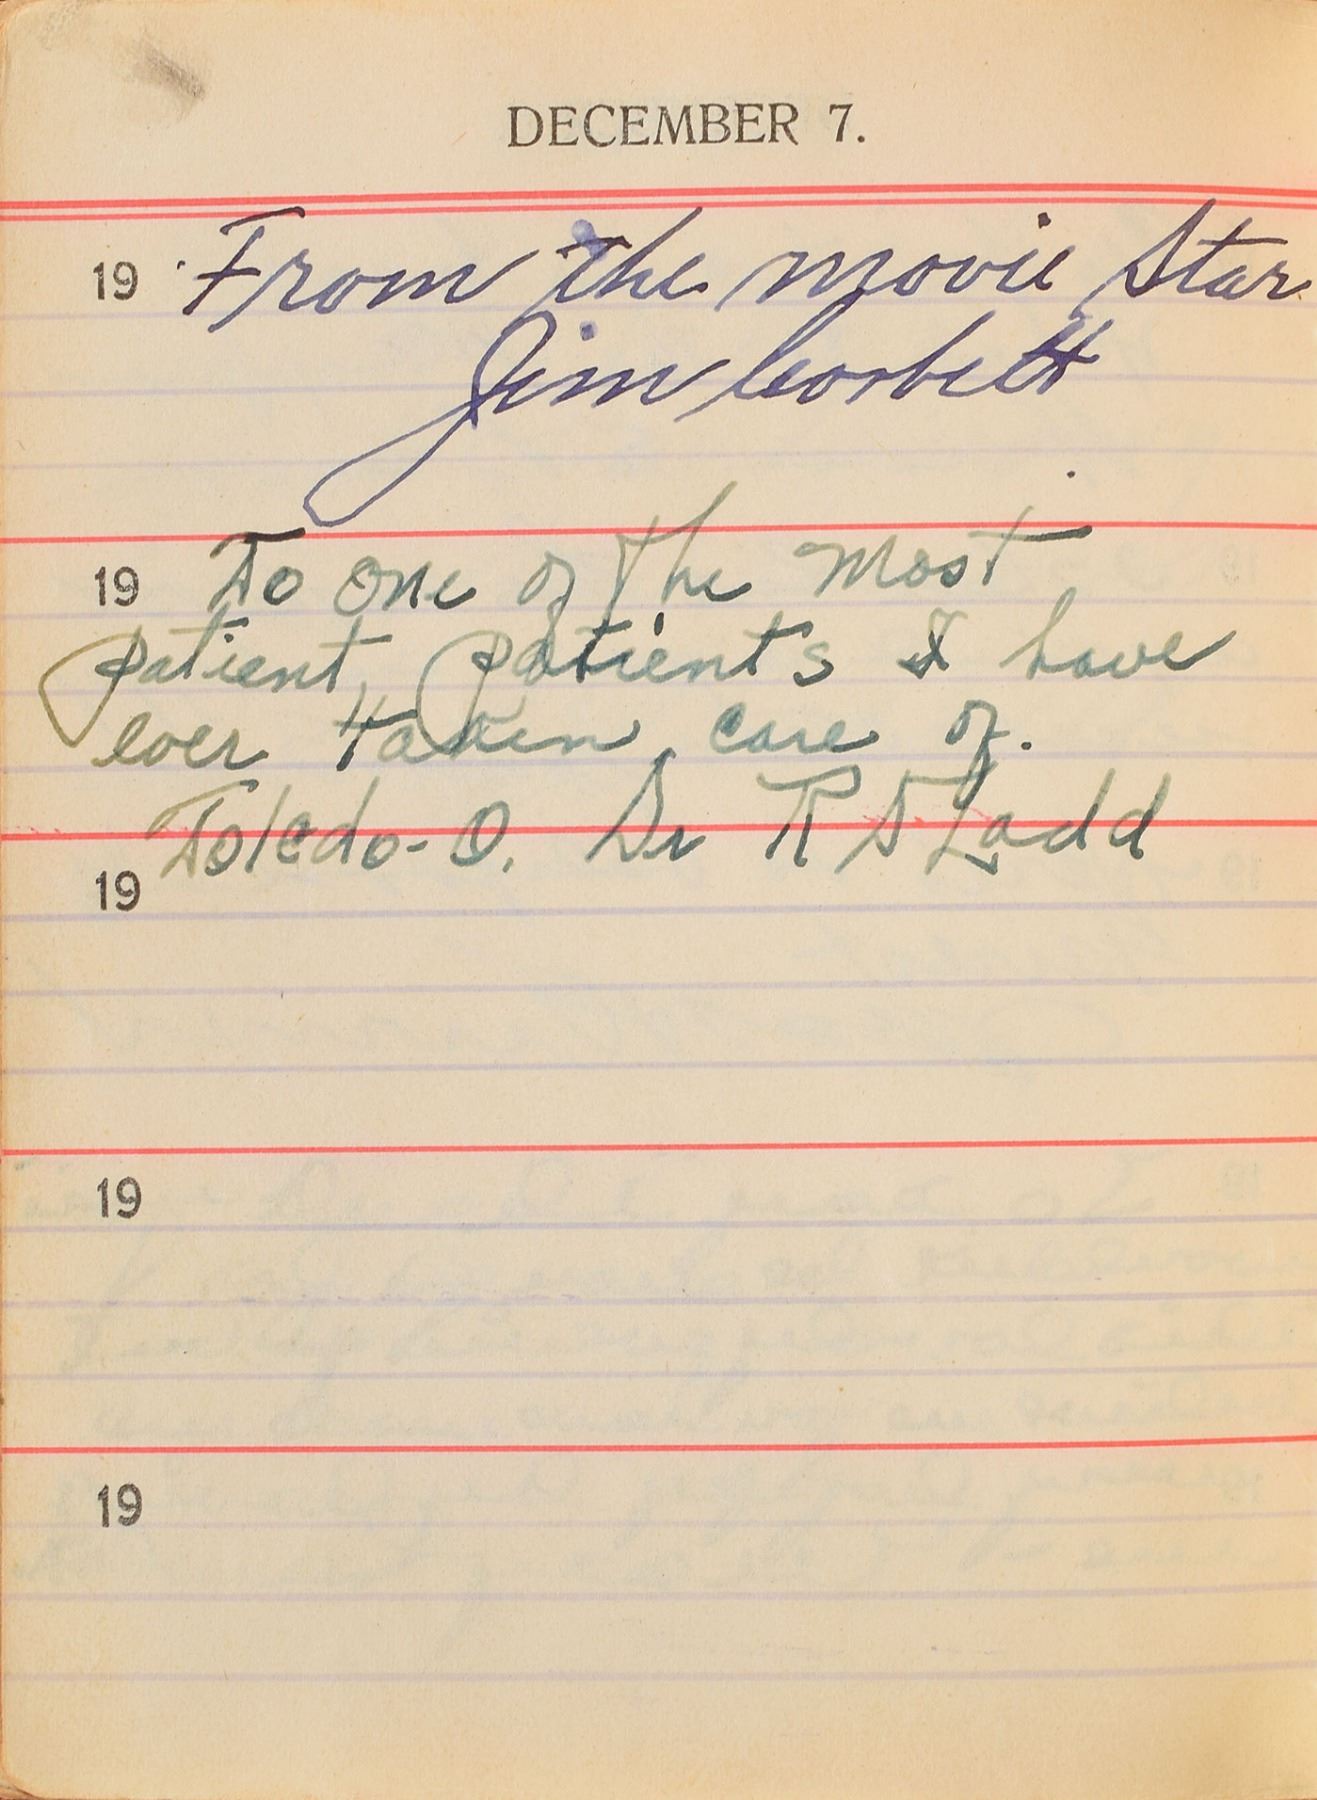 DECEMBER 7.
19 From the movie Star
Jim Corbett
19 To one of the most
patient, patients I have
ever taken care of.
Toledo-O. Dr R S Ladd
19
19
19